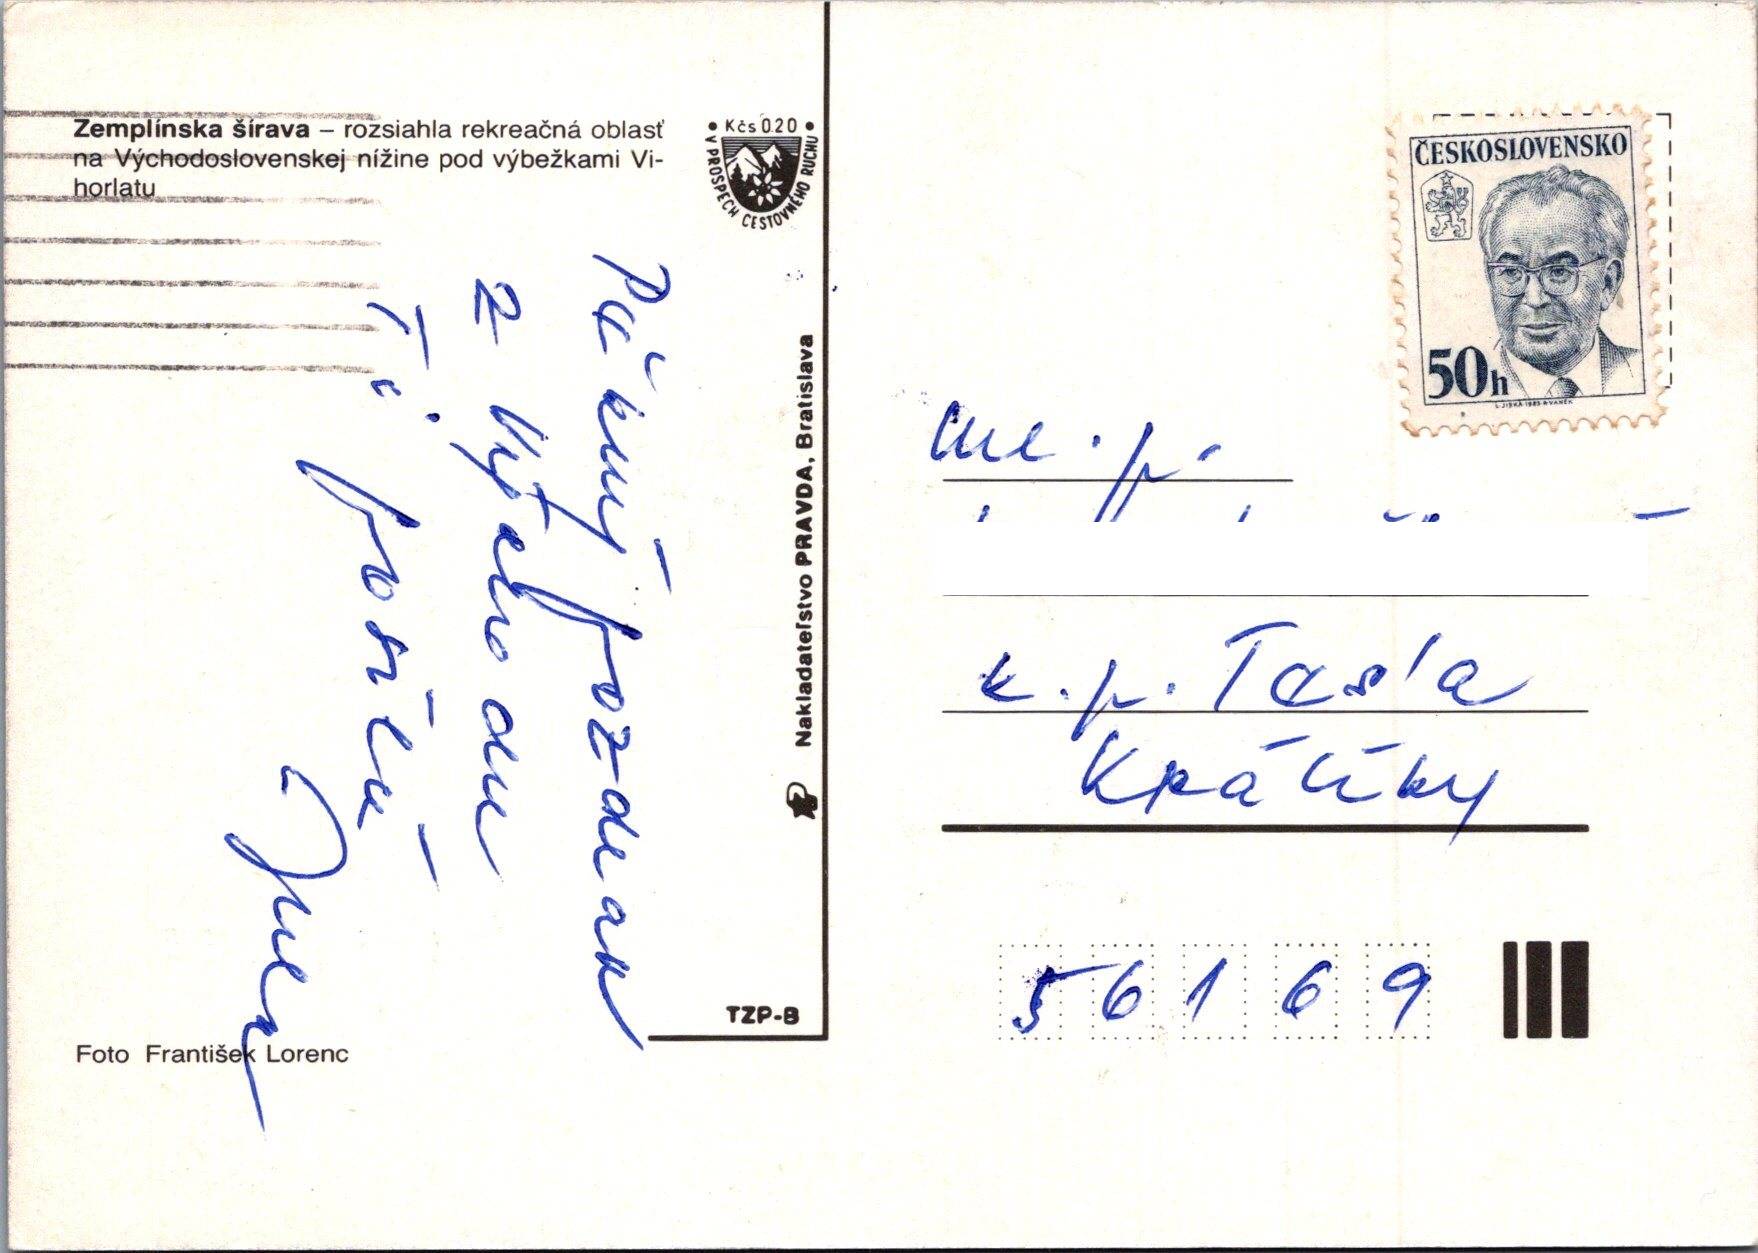 Zemplínska šírava – rozsiahla rekreačná oblasť
na Východoslovenskej nížine pod výbežkami Vi-
horlatu
• Kčs 0.20 •
V PROSPECH CESTOVNÉHO RUCHU
Pěkný pozdrav
z Východu
Ti posílá
Nakladateľstvo PRAVDA, Bratislava
TZP-B
Foto František Lorenc
ČESKOSLOVENSKO
50h
L. JIRKA 1983 A. VANĚK
Ml. p.
k. p. Tesla
Králíky
56169